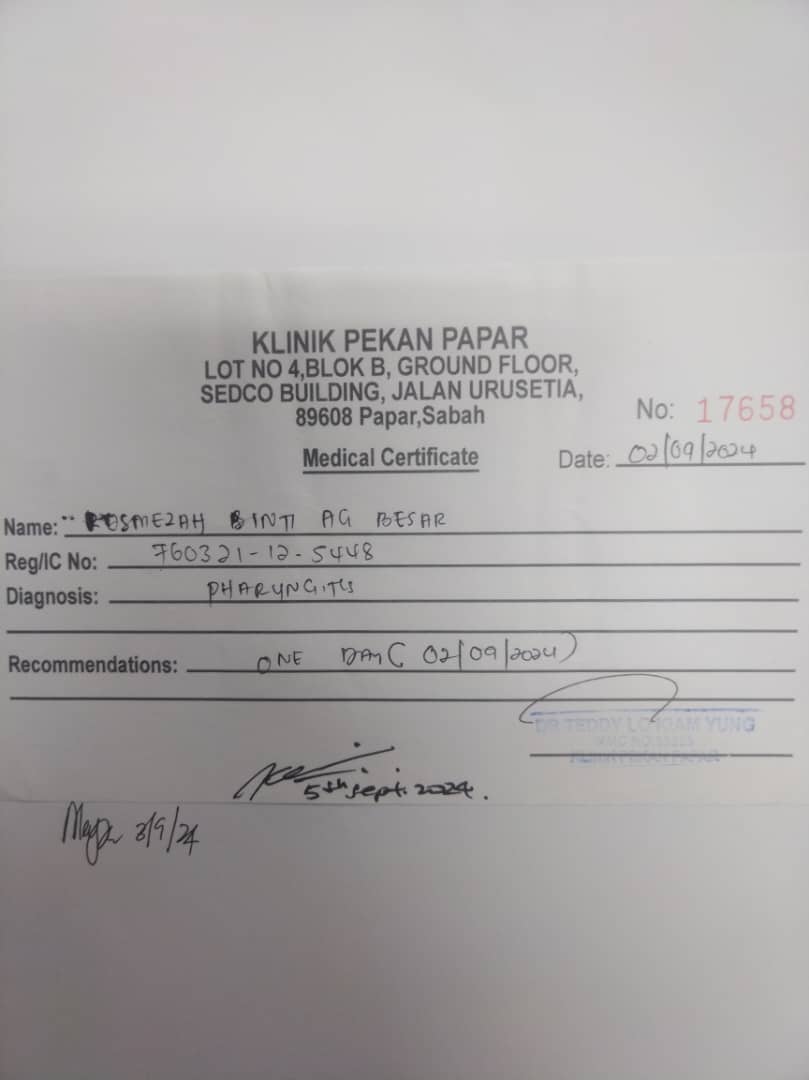 KLINIK PEKAN PAPAR
LOT NO 4,BLOK B, GROUND FLOOR,
SEDCO BUILDING, JALAN URUSETIA,
89608 Papar,Sabah
No: 17658
Medical Certificate
Date: 02/09/2024
Name: ROSMEZAH BINTI AG BESAR
Reg/IC No: 760321-12-5448
Diagnosis: PHARYNGITIS
Recommendations: ONE DAY ( 02/09/2024)
DR TEDDY YUNG
KLINIK PEKAN PAPAR
5th Sept. 2024.
3/9/24